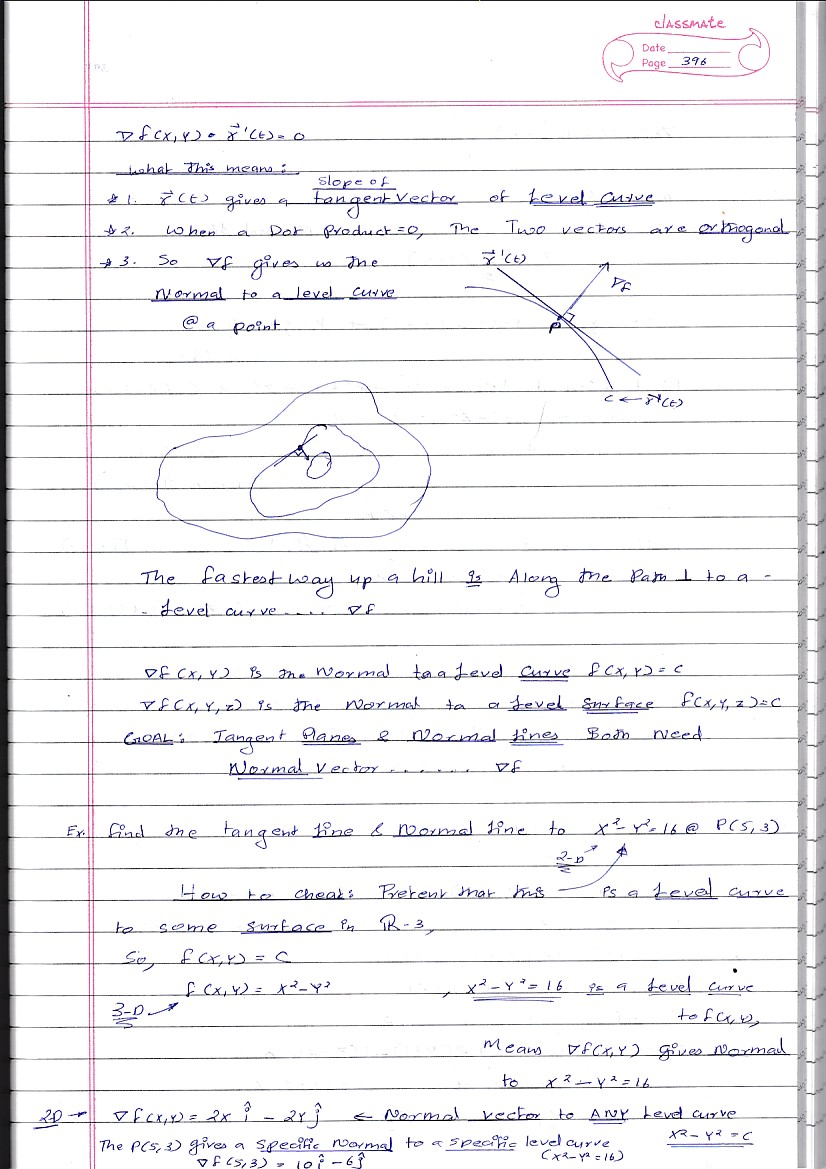 classmate
Date
Page 396
∇f(x,y) • r⃗'(t) = 0
What this means:
slope of
* 1. r⃗(t) gives a tangent vector of Level Curve
* 2. When a Dot Product = 0, The Two vectors are orthogonal
* 3. So ∇f gives us the
Normal to a level curve
@ a point
r⃗'(t)
∇f
P
C ← r⃗(t)
The fastest way up a hill is Along the Path ⊥ to a -
- Level curve .... ∇f
∇f(x,y) is the Normal to a Level Curve f(x,y) = C
∇f(x,y,z) is the Normal to a Level Surface f(x,y,z) = C
GOAL: Tangent Planes & Normal Lines Both Need
Normal Vector ....... ∇f
Ex. Find the tangent line & Normal line to x²-y²=16 @ P(5,3)
2-D
How to cheat: Pretent that this is a Level curve
to some surface in R-3,
So, f(x,y) = C
f(x,y) = x²-y² , x²-y²=16 is a Level curve
3-D
to f(x,y),
Means ∇f(x,y) gives Normal
to x²-y²=16
2D → ∇f(x,y) = 2x î - 2y ĵ ← Normal vector to ANY Level curve
x²-y²=C
The P(5,3) gives a specific Normal to a specific level curve
(x²-y²=16)
∇f(5,3) = 10î - 6ĵ